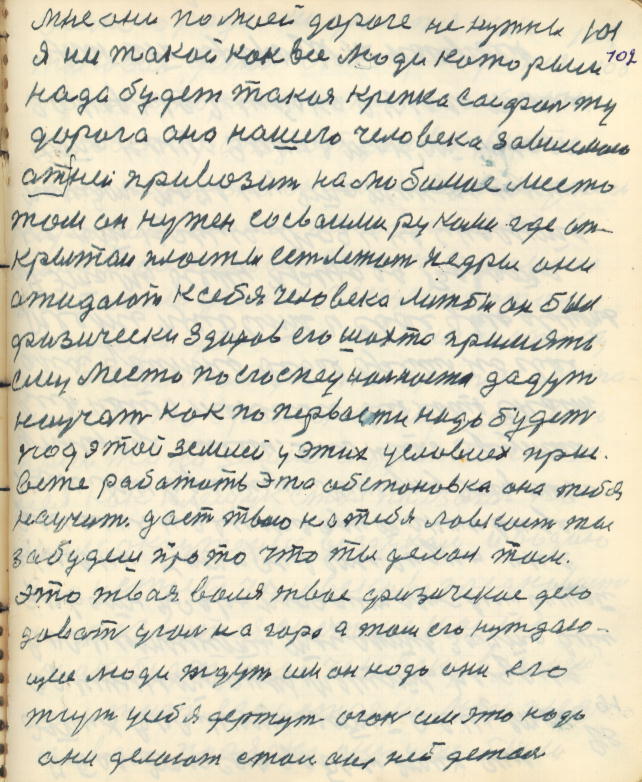 мне они по моей дороге не нужны 101
я не такой как все люди которым 102
нада будет такая крепка
дорога она нашего человека зависимово
от ней привозит на любимае место
там он нужен со своими руками где от-
крытаи пласты лежат недры они
ожидают к себя человека литбы он был
физически здоров его шахта примять
ему место по спецыалности дадут
научат как по первости надо будет
под этой землей у этих условиех при-
вете работать эта обстановка она тебя
научит даст твою на тебя ловкост ты
забудеш про то что ты делал там.
это твая воля твое физическое дело
довать угол на гора а там его нуждаю-
щие люди ждут им он надо они его
жгут у себя держут огон им это надо
они делают стал